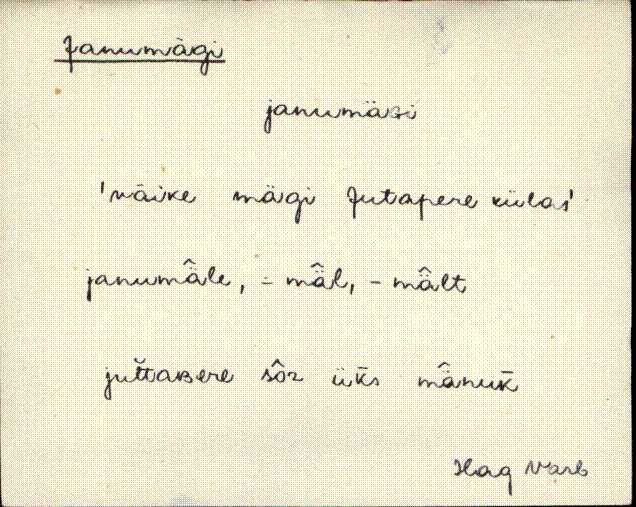 Janumägi
janumäɢi
'väike mägi Jutapere külas'
janumä̂le, -mä̂l, -mä̂lt
jut̆taʙere sôr ük̄s mä̂nuk̄
Hag Varb